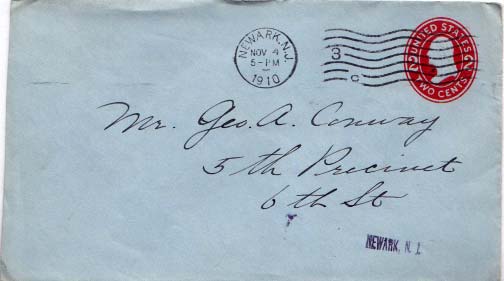 NEWARK, N.J.
NOV 4
5-PM
1910
3
C
UNITED STATES
2 2
TWO CENTS
Mr. Geo. A. Conway
5th Precinct
6th St
NEWARK, N. J.